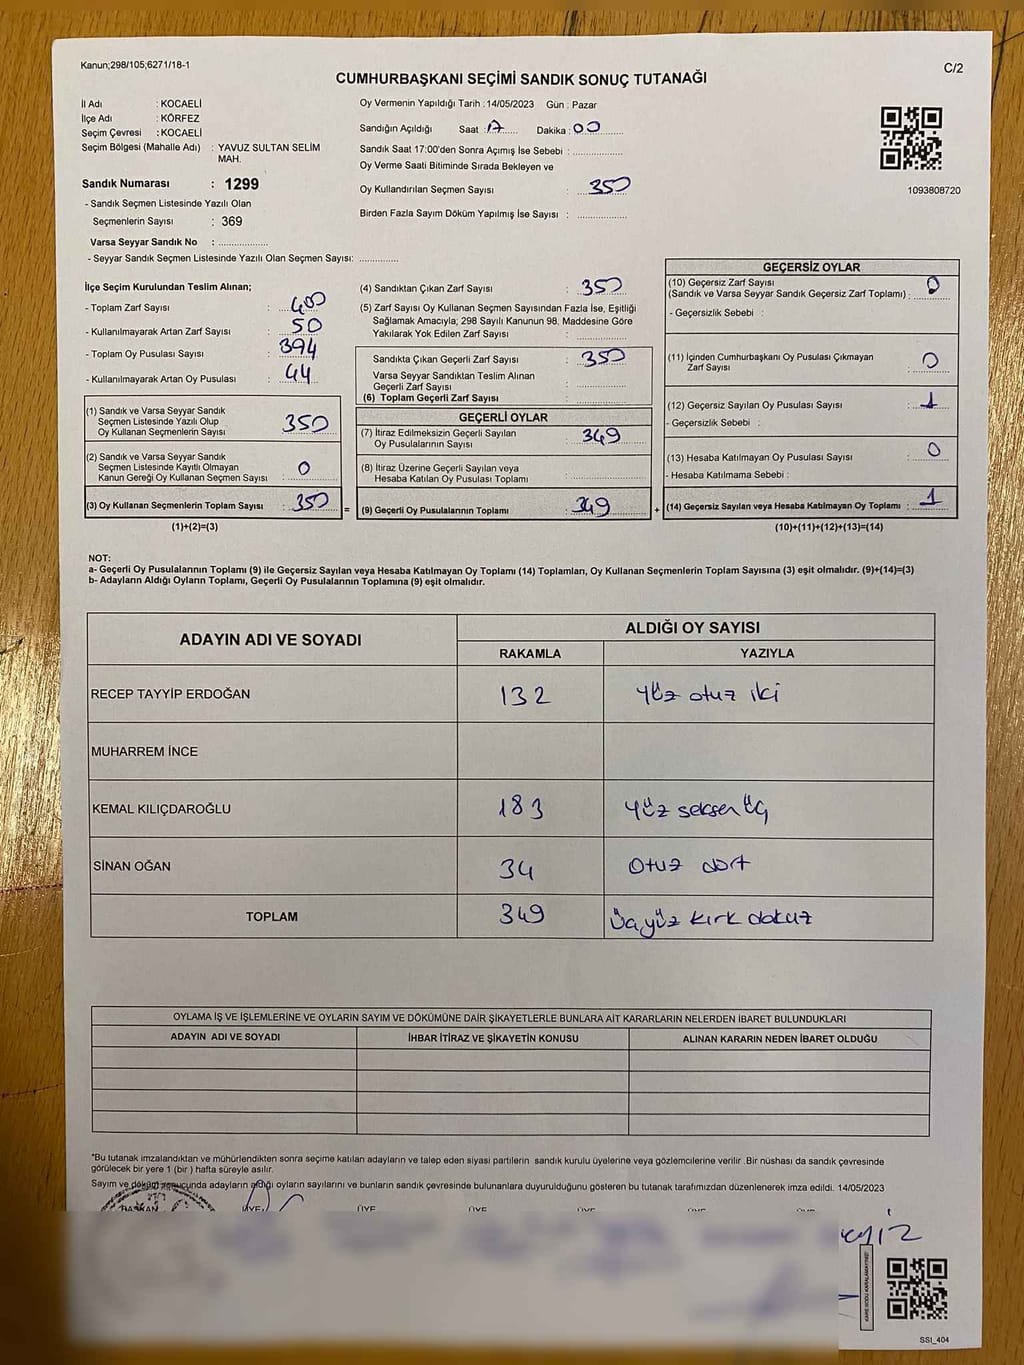 Kanun;298/105;6271/18-1
C/2
CUMHURBAŞKANI SEÇİMİ SANDIK SONUÇ TUTANAĞI
İl Adı : KOCAELİ
İlçe Adı : KÖRFEZ
Seçim Çevresi : KOCAELİ
Seçim Bölgesi (Mahalle Adı) : YAVUZ SULTAN SELİM
MAH.
Sandık Numarası : 1299
- Sandık Seçmen Listesinde Yazılı Olan
Seçmenlerin Sayısı : 369
Varsa Seyyar Sandık No : ..................
- Seyyar Sandık Seçmen Listesinde Yazılı Olan Seçmen Sayısı: ..............
Oy Vermenin Yapıldığı Tarih : 14/05/2023 Gün : Pazar
Sandığın Açıldığı Saat : 17 Dakika : 00
Sandık Saat 17:00'den Sonra Açımış İse Sebebi : ..................
Oy Verme Saati Bitiminde Sırada Bekleyen ve
Oy Kullandırılan Seçmen Sayısı : 350
Birden Fazla Sayım Döküm Yapılmış İse Sayısı : ..................
1093808720
İlçe Seçim Kurulundan Teslim Alınan;
- Toplam Zarf Sayısı : 400
- Kullanılmayarak Artan Zarf Sayısı : 50
- Toplam Oy Pusulası Sayısı : 394
- Kullanılmayarak Artan Oy Pusulası : 44
(1) Sandık ve Varsa Seyyar Sandık
Seçmen Listesinde Yazılı Olup
Oy Kullanan Seçmenlerin Sayısı : 350
(2) Sandık ve Varsa Seyyar Sandık
Seçmen Listesinde Kayıtlı Olmayan
Kanun Gereği Oy Kullanan Seçmen Sayısı : 0
(3) Oy Kullanan Seçmenlerin Toplam Sayısı : 350 =
(1)+(2)=(3)
(4) Sandıktan Çıkan Zarf Sayısı : 350
(5) Zarf Sayısı Oy Kullanan Seçmen Sayısından Fazla İse, Eşitliği
Sağlamak Amacıyla; 298 Sayılı Kanunun 98. Maddesine Göre
Yakılarak Yok Edilen Zarf Sayısı :
Sandıkta Çıkan Geçerli Zarf Sayısı : 350
Varsa Seyyar Sandıktan Teslim Alınan
Geçerli Zarf Sayısı :
(6) Toplam Geçerli Zarf Sayısı :
GEÇERLİ OYLAR
(7) İtiraz Edilmeksizin Geçerli Sayılan
Oy Pusulalarının Sayısı : 349
(8) İtiraz Üzerine Geçerli Sayılan veya
Hesaba Katılan Oy Pusulası Toplamı :
(9) Geçerli Oy Pusulalarının Toplamı : 349 +
GEÇERSİZ OYLAR
(10) Geçersiz Zarf Sayısı
(Sandık ve Varsa Seyyar Sandık Geçersiz Zarf Toplamı) : 0
- Geçersizlik Sebebi :
(11) İçinden Cumhurbaşkanı Oy Pusulası Çıkmayan
Zarf Sayısı : 0
(12) Geçersiz Sayılan Oy Pusulası Sayısı : 1
- Geçersizlik Sebebi :
(13) Hesaba Katılmayan Oy Pusulası Sayısı : 0
- Hesaba Katılmama Sebebi :
(14) Geçersiz Sayılan veya Hesaba Katılmayan Oy Toplamı : 1
(10)+(11)+(12)+(13)=(14)
NOT:
a- Geçerli Oy Pusulalarının Toplamı (9) ile Geçersiz Sayılan veya Hesaba Katılmayan Oy Toplamı (14) Toplamları, Oy Kullanan Seçmenlerin Toplam Sayısına (3) eşit olmalıdır. (9)+(14)=(3)
b- Adayların Aldığı Oyların Toplamı, Geçerli Oy Pusulalarının Toplamına (9) eşit olmalıdır.
ADAYIN ADI VE SOYADI
ALDIĞI OY SAYISI
RAKAMLA YAZIYLA
RECEP TAYYİP ERDOĞAN 132 Yüz otuz iki
MUHARREM İNCE
KEMAL KILIÇDAROĞLU 183 Yüz seksen üç
SİNAN OĞAN 34 Otuz dört
TOPLAM 349 Üçyüz kırk dokuz
OYLAMA İŞ VE İŞLEMLERİNE VE OYLARIN SAYIM VE DÖKÜMÜNE DAİR ŞİKAYETLERLE BUNLARA AİT KARARLARIN NELERDEN İBARET BULUNDUKLARI
ADAYIN ADI VE SOYADI İHBAR İTİRAZ VE ŞİKAYETİN KONUSU ALINAN KARARIN NEDEN İBARET OLDUĞU
"Bu tutanak imzalandıktan ve mühürlendikten sonra seçime katılan adayların ve talep eden siyasi partilerin sandık kurulu üyelerine veya gözlemcilerine verilir .Bir nüshası da sandık çevresinde
görülecek bir yere 1 (bir ) hafta süreyle asılır.
Sayım ve döküm sonucunda adayların aldığı oyların sayılarını ve bunların sandık çevresinde bulunanlara duyurulduğunu gösteren bu tutanak tarafımızdan düzenlenerek imza edildi. 14/05/2023
BAŞKAN ÜYE ÜYE ÜYE ÜYE
SSI_404